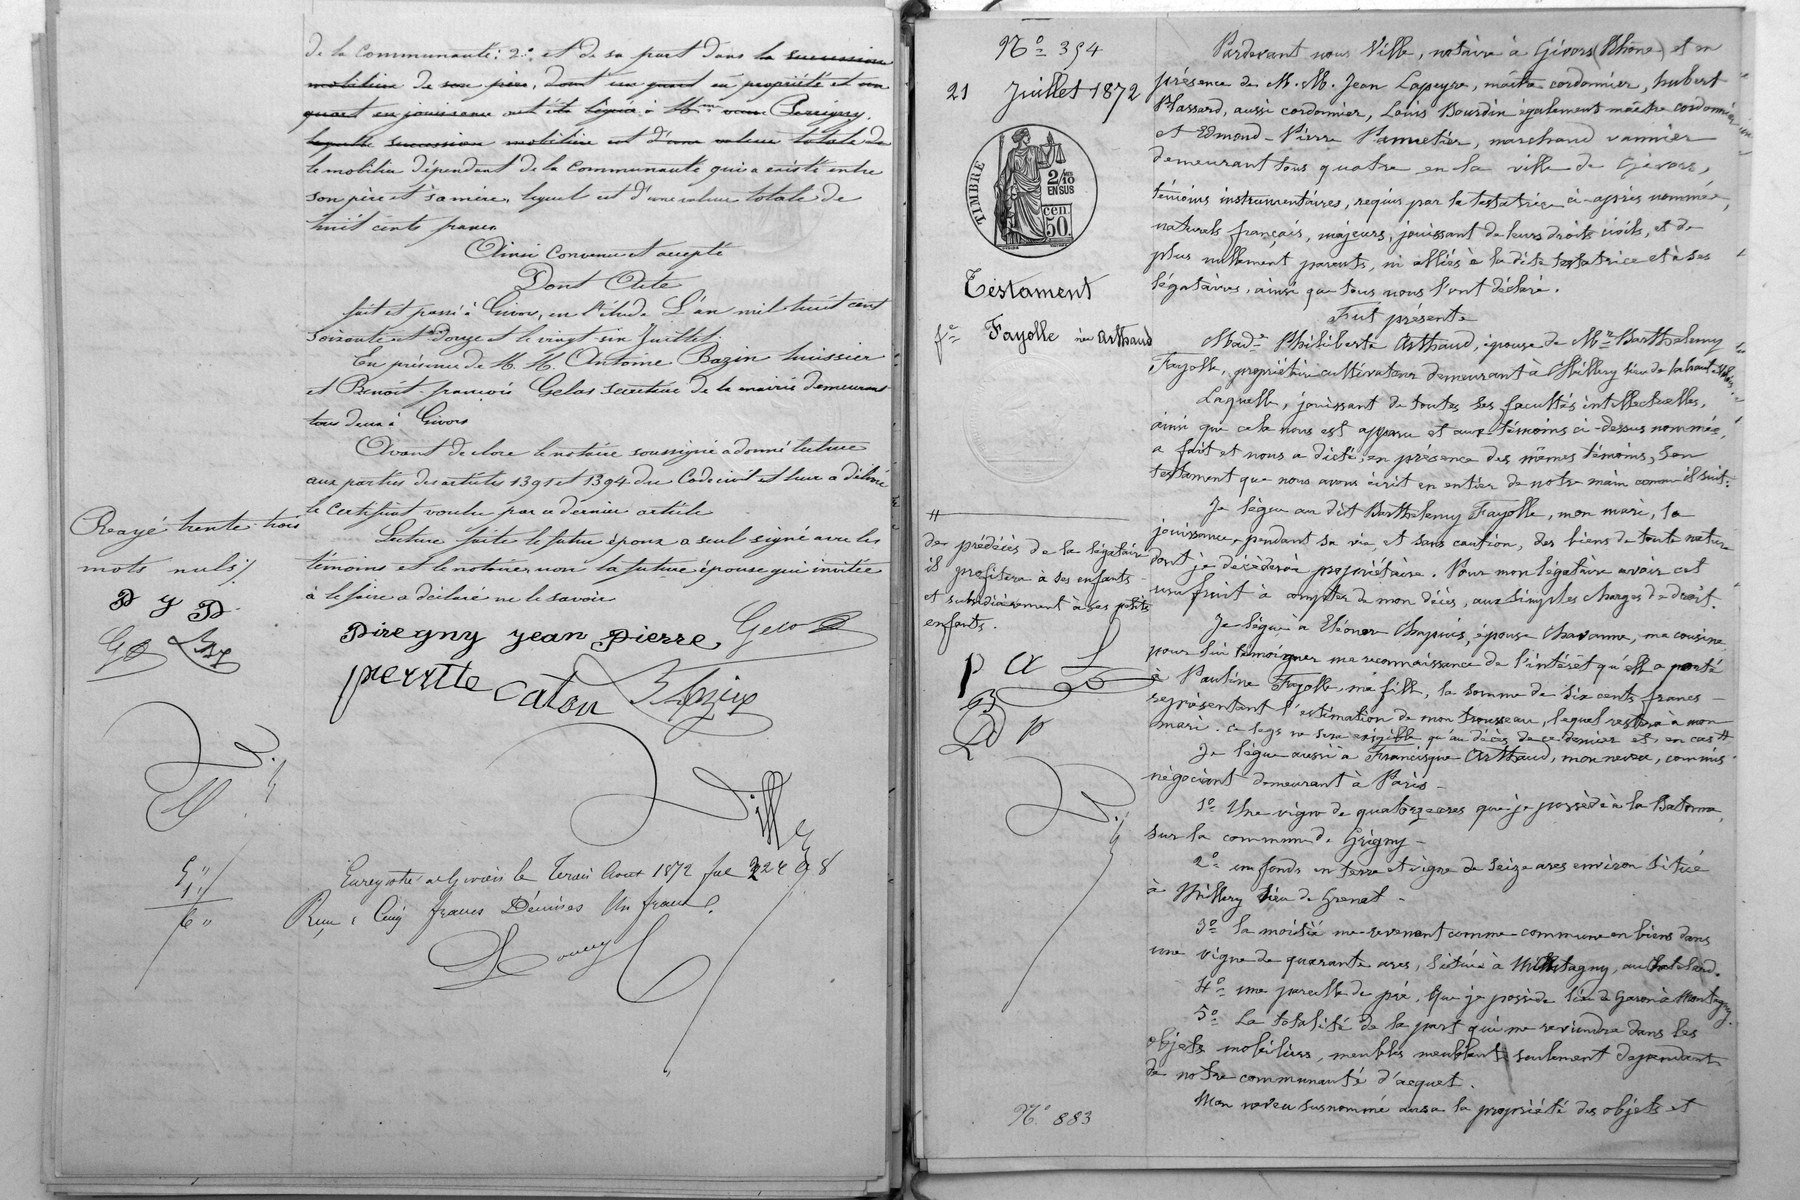 de la communauté: 2° et de sa part dans la succession
mobilière de son père, dont un quart en propriété et un
quart en jouissance ont été légués à Mme veuve Peregny,
laquelle succession mobilière est d'une valeur totale de
le mobilier dépendant de la communauté qui a existé entre
son père et sa mère, lequel est d'une valeur totale de
huit cents francs
Ainsi convenu et accepté
Dont Acte
fait et passé à Givors, en l'étude L'an mil huit cent
soixante et douze et le vingt six Juillet
En présence de M. M. Antoine Bazin huissier
et Benoît françois Gelas secrétaire de la mairie demeurant
tous deux à Givors
Avant de clore le notaire soussigné a donné lecture
aux parties des articles 1391 et 1394 du Code civil et leur a délivré
le certificat voulu par ce dernier article
Lecture faite le futur époux a seul signé avec les
témoins et le notaire, non la future épouse qui invitée
à le faire a déclaré ne le savoir
Rayé trente-trois
mots nuls
P y P
piregny jean pierre Gelas
perrtte caton Bazin
Ville
Enregistré à Givors le trois Août 1872 fol 22
Reçu : Cinq francs Décimes Un franc.
5 "
1 "
6 "
N° 354
21 Juillet 1872
TIMBRE
2/10
EN SUS
50 cen.
Testament
fe Fayolle née Arthaud
Pardevant nous Ville, notaire à Givors (Rhône) et en
présence de M. M. Jean Lapeyre, maître cordonnier, hubert
Blassard, aussi cordonnier, Louis Bourdin également maître cordonnier
et Edmond-Pierre Pannetier, marchand vannier
demeurant tous quatre en la ville de Givors,
témoins instrumentaires, requis par la testatrice ci-après nommée,
naturels français, majeurs, jouissant de leurs droits civils, et de
plus nullement parents, ni alliés à la dite testatrice et à ses
légataires, ainsi que tous nous l'ont déclaré.
Fut présente
Made Philiberte Arthaud, épouse de Mr Barthelemy
Fayolle, propriétaire cultivateur demeurant à Millery lieu de
Laquelle, jouissant de toutes ses facultés intellectuelles,
ainsi que cela nous est apparu et aux témoins ci-dessus nommés,
a fait et nous a dicté, en présence des mêmes témoins, son
testament que nous avons écrit en entier de notre main comme il suit:
Je lègue au dit Barthelemy Fayolle, mon mari, la
jouissance, pendant sa vie, et sans caution, des biens de toute nature
dont je décèderai propriétaire. Pour mon légataire avoir cet
usufruit à compter de mon décès, aux simples charges de droit.
Je lègue à Eléonor Chapuis, épouse Chavanne, ma cousine
pour lui témoigner ma reconnaissance de l'intérêt qu'elle a porté
à Pauline Fayolle, ma fille, la somme de six cents francs
représentant l'estimation de mon trousseau, lequel restera à mon
mari. ce legs ne sera exigible qu'au décès de ce dernier et, en cas #
Je lègue aussi à Francisque Arthaud, mon neveu, commis
négociant demeurant à Paris
1° Une vigne de quatorze ares que je possède à la Batonne,
sur la commune de Grigny
2° un fonds en terre et vigne de seize ares environ situé
à Millery lieu de Grenat
3° la moitié me revenant comme commune en biens dans
une vigne de quarante ares, située à Montagny, au Chatelard.
4° une parcelle de pré, que je possède lieu de Garon à Montagny.
5° La totalité de la part qui me reviendra dans les
objets mobiliers, meubles meublants seulement dépendant
de notre communauté d'acquet.
Mon neveu susnommé aura la propriété des objets et
#
de prédécès de la légataire
il profitera à ses enfants
et subsidiairement à ses petits
enfants.
P A L
B
P
N° 883